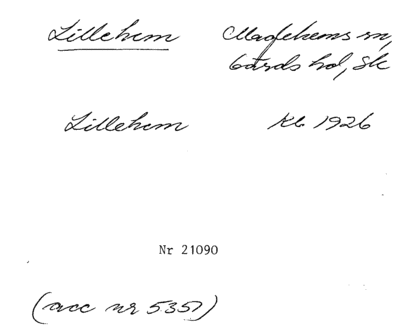 Lillehem Maglehems sn,
Gärds hd, Sk
Lillehem Kb 1926
Nr 21090
(acc nr 5357)